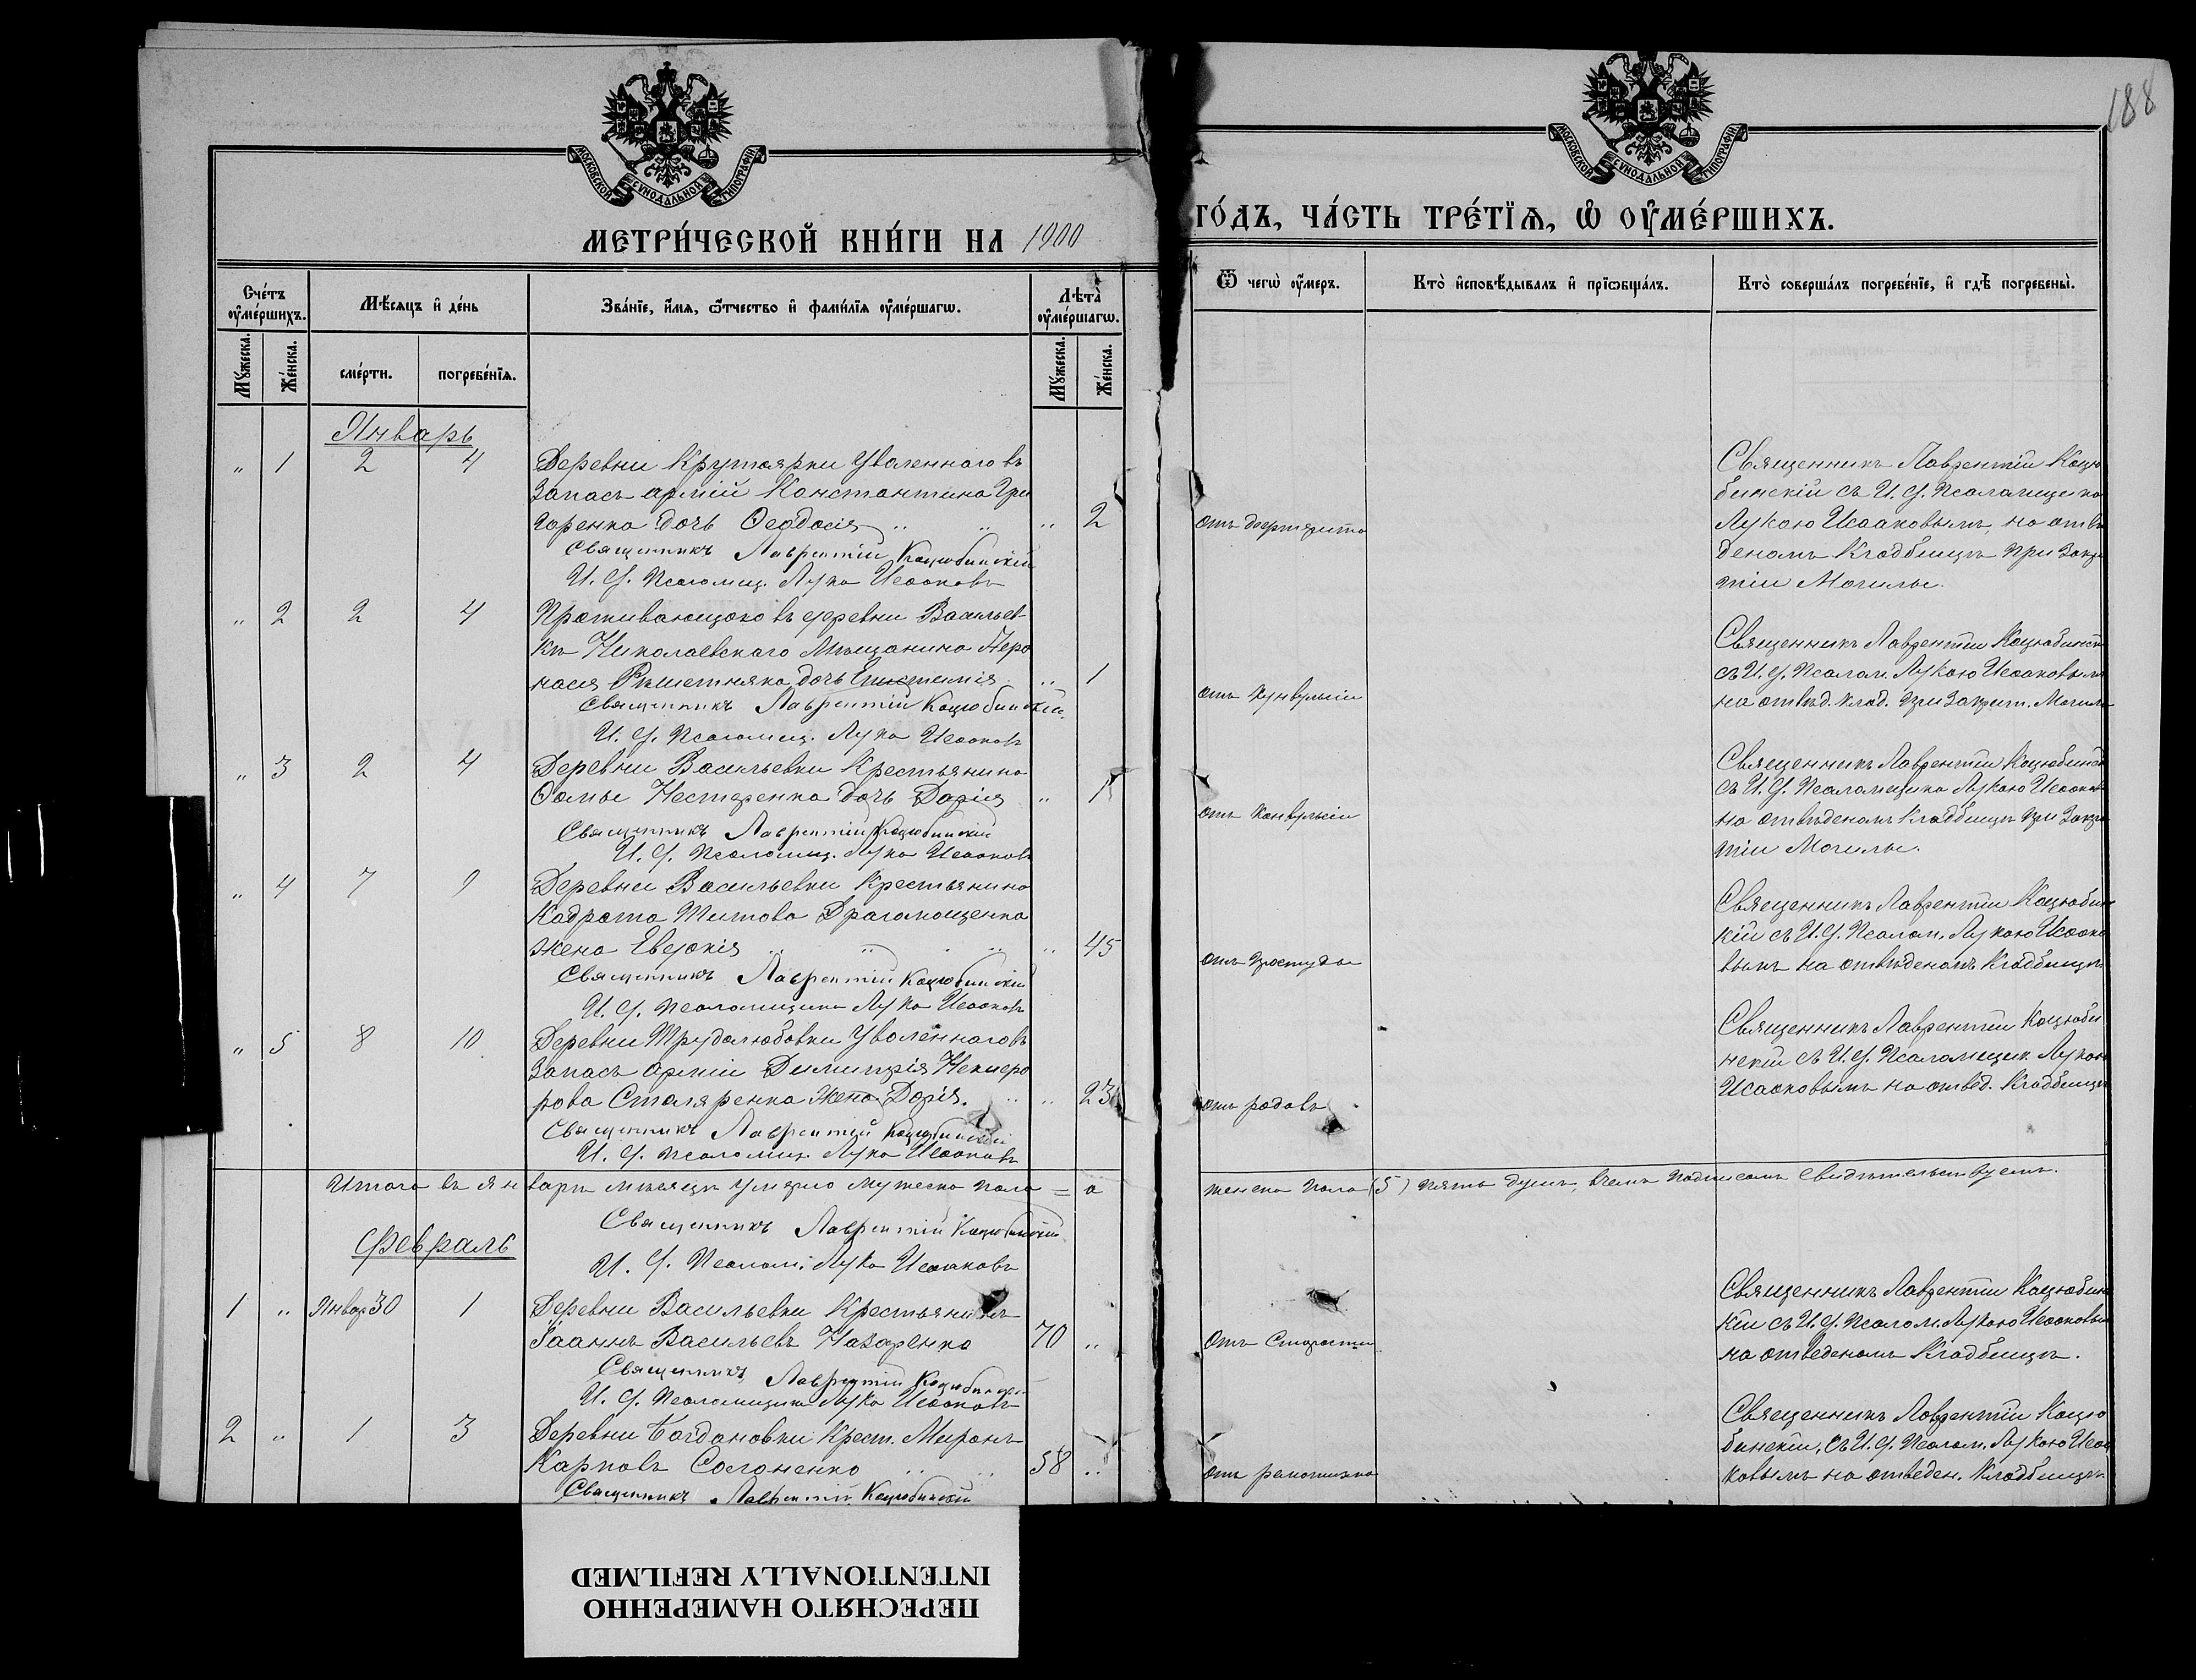 188
МОСКОВСКОЙ СѴНОДАЛЬНОЙ ТИПОГРАФІИ
МОСКОВСКОЙ СѴНОДАЛЬНОЙ ТИПОГРАФІИ
МЕТРИ́ЧЕСКОЙ КНИ́ГИ НА 1900
ГО́ДЪ, ЧА́СТЬ ТРЕ́ТЇѦ, Ѡ҆ ОУ҆МЕ́РШИХЪ.
Сче́тъ оу҆ме́ршихъ.
Мѣ́сѧцъ и҆ де́нь
Зва́нїе, и҆́мѧ, ѻ҆́тчество и҆ фами́лїѧ оу҆ме́ршагѡ.
Лѣта̀ оу҆ме́ршагѡ.
Ѿ чегѡ̀ оу҆́меръ.
Кто̀ и҆сповѣ́дывалъ и҆ прїѡбща́лъ.
Кто̀ соверша́лъ погребе́нїе, и҆ гдѣ̀ погребены̀.
Мꙋ́жеска.
Же́нска.
сме́рти.
погребе́нїѧ.
Мꙋ́жеска.
Же́нска.
Январь
„ 1 2 4 Деревни Крутоярки Уволеннаго въ
Запасъ армій Константина Гри
горенка дочь Ѳеодосія „ „ „ 2
Священникъ Лаврентій Коцюбинскій
И. д. Псаломщ. Лука Исааковъ
отъ дефтерита
Священникъ Лаврентій Коцю
бинскій съ И. д. Псаломщика
Лукою Исааковымъ, на отве
деномъ Кладбищѣ при Закры
тіи Могилы.
„ 2 2 4 Проживающаго въ деревни Васильев
кѣ Николаевскаго Мѣщанина
Рѣшетняка дочь Епистимія „ 1
Священникъ Лаврентій Коцюбинскій.
И. д. Псаломщ. Лука Исааковъ
отъ кунвульсіи
Священникъ Лаврентій Коцюбинск
съ И. д. Псалом. Лукою Исааковымъ
на отвѣд. клад. при Закрыт. Могилы
„ 3 2 4 Деревни Васильевки Крестьянина
Ѳомы Нестеренка дочь Дарія „ 1
Священникъ Лаврентій Коцюбинскій
И. д. Псаломщ. Лука Исааковъ
отъ Конвульсіи
Священникъ Лаврентій Коцюбинск
съ И. д. Псаломщика Лукою Исааков
на отвѣденомъ Кладбищѣ при Закры
тіи Могилы.
„ 4 7 9 Деревни Васильевки Крестьянина
Кодрата Титова Драгомощенка
жена Евдокія „ „ „ „ 45
Священникъ Лаврентій Коцюбинскій
И. д. Псаломщика Лука Исааковъ
отъ простуды
Священникъ Лаврентій Коцюбин
кій съ И. д. Псалом. Лукою Исаако
вымъ на отвѣденомъ Кладбищѣ
„ 5 8 10 Деревни Трудолюбовки Уволеннаго въ
Запасъ армій Димитрія
рова Столяренка жена Дарія. „ „ 23
Священникъ Лаврентій Коцюбинскій
И. д. Псаломщ. Лука Исааковъ
отъ родовъ
Священникъ Лаврентій Коцюби
нскій съ И. д. Псаломщик Лукою
Исааковымъ на отвед. Кладбищѣ
Итого въ январѣ мѣсяцѣ умерло мужеска пола = 0
женска пола (5) пять душъ, въ чемъ подписомъ свидѣтельствуемъ.
Священникъ Лаврентій Коцюбинскій
И. д. Псалом. Лука Исааковъ
Февраль
1 „ Январ 30 1 Деревни Васильевки Крестьянинъ
Іоаннъ Васильевъ Назаренко 70 „
Священникъ Лаврентій Коцюбинскі
И. д. Псаломщика Лука Исааковъ
Отъ Старости
Священникъ Лаврентій Коцюбин
кій съ И. д. Псалом. Лукою Исааковы
на отведеномъ Кладбищѣ.
2 „ 1 3 Деревни Богдановки Крест. Миронъ
Карповъ Солоненко „ „ 58 „
Священникъ Лаврентій Коцюбинскій
отъ ревматизма
Священникъ Лаврентій Коцю
бинскій, съ И. д. Псалом. Лукою Исаа
ковымъ на отведен. Кладбищѣ
ПЕРЕСНЯТО НАМЕРЕННО
INTENTIONALLY REFILMED